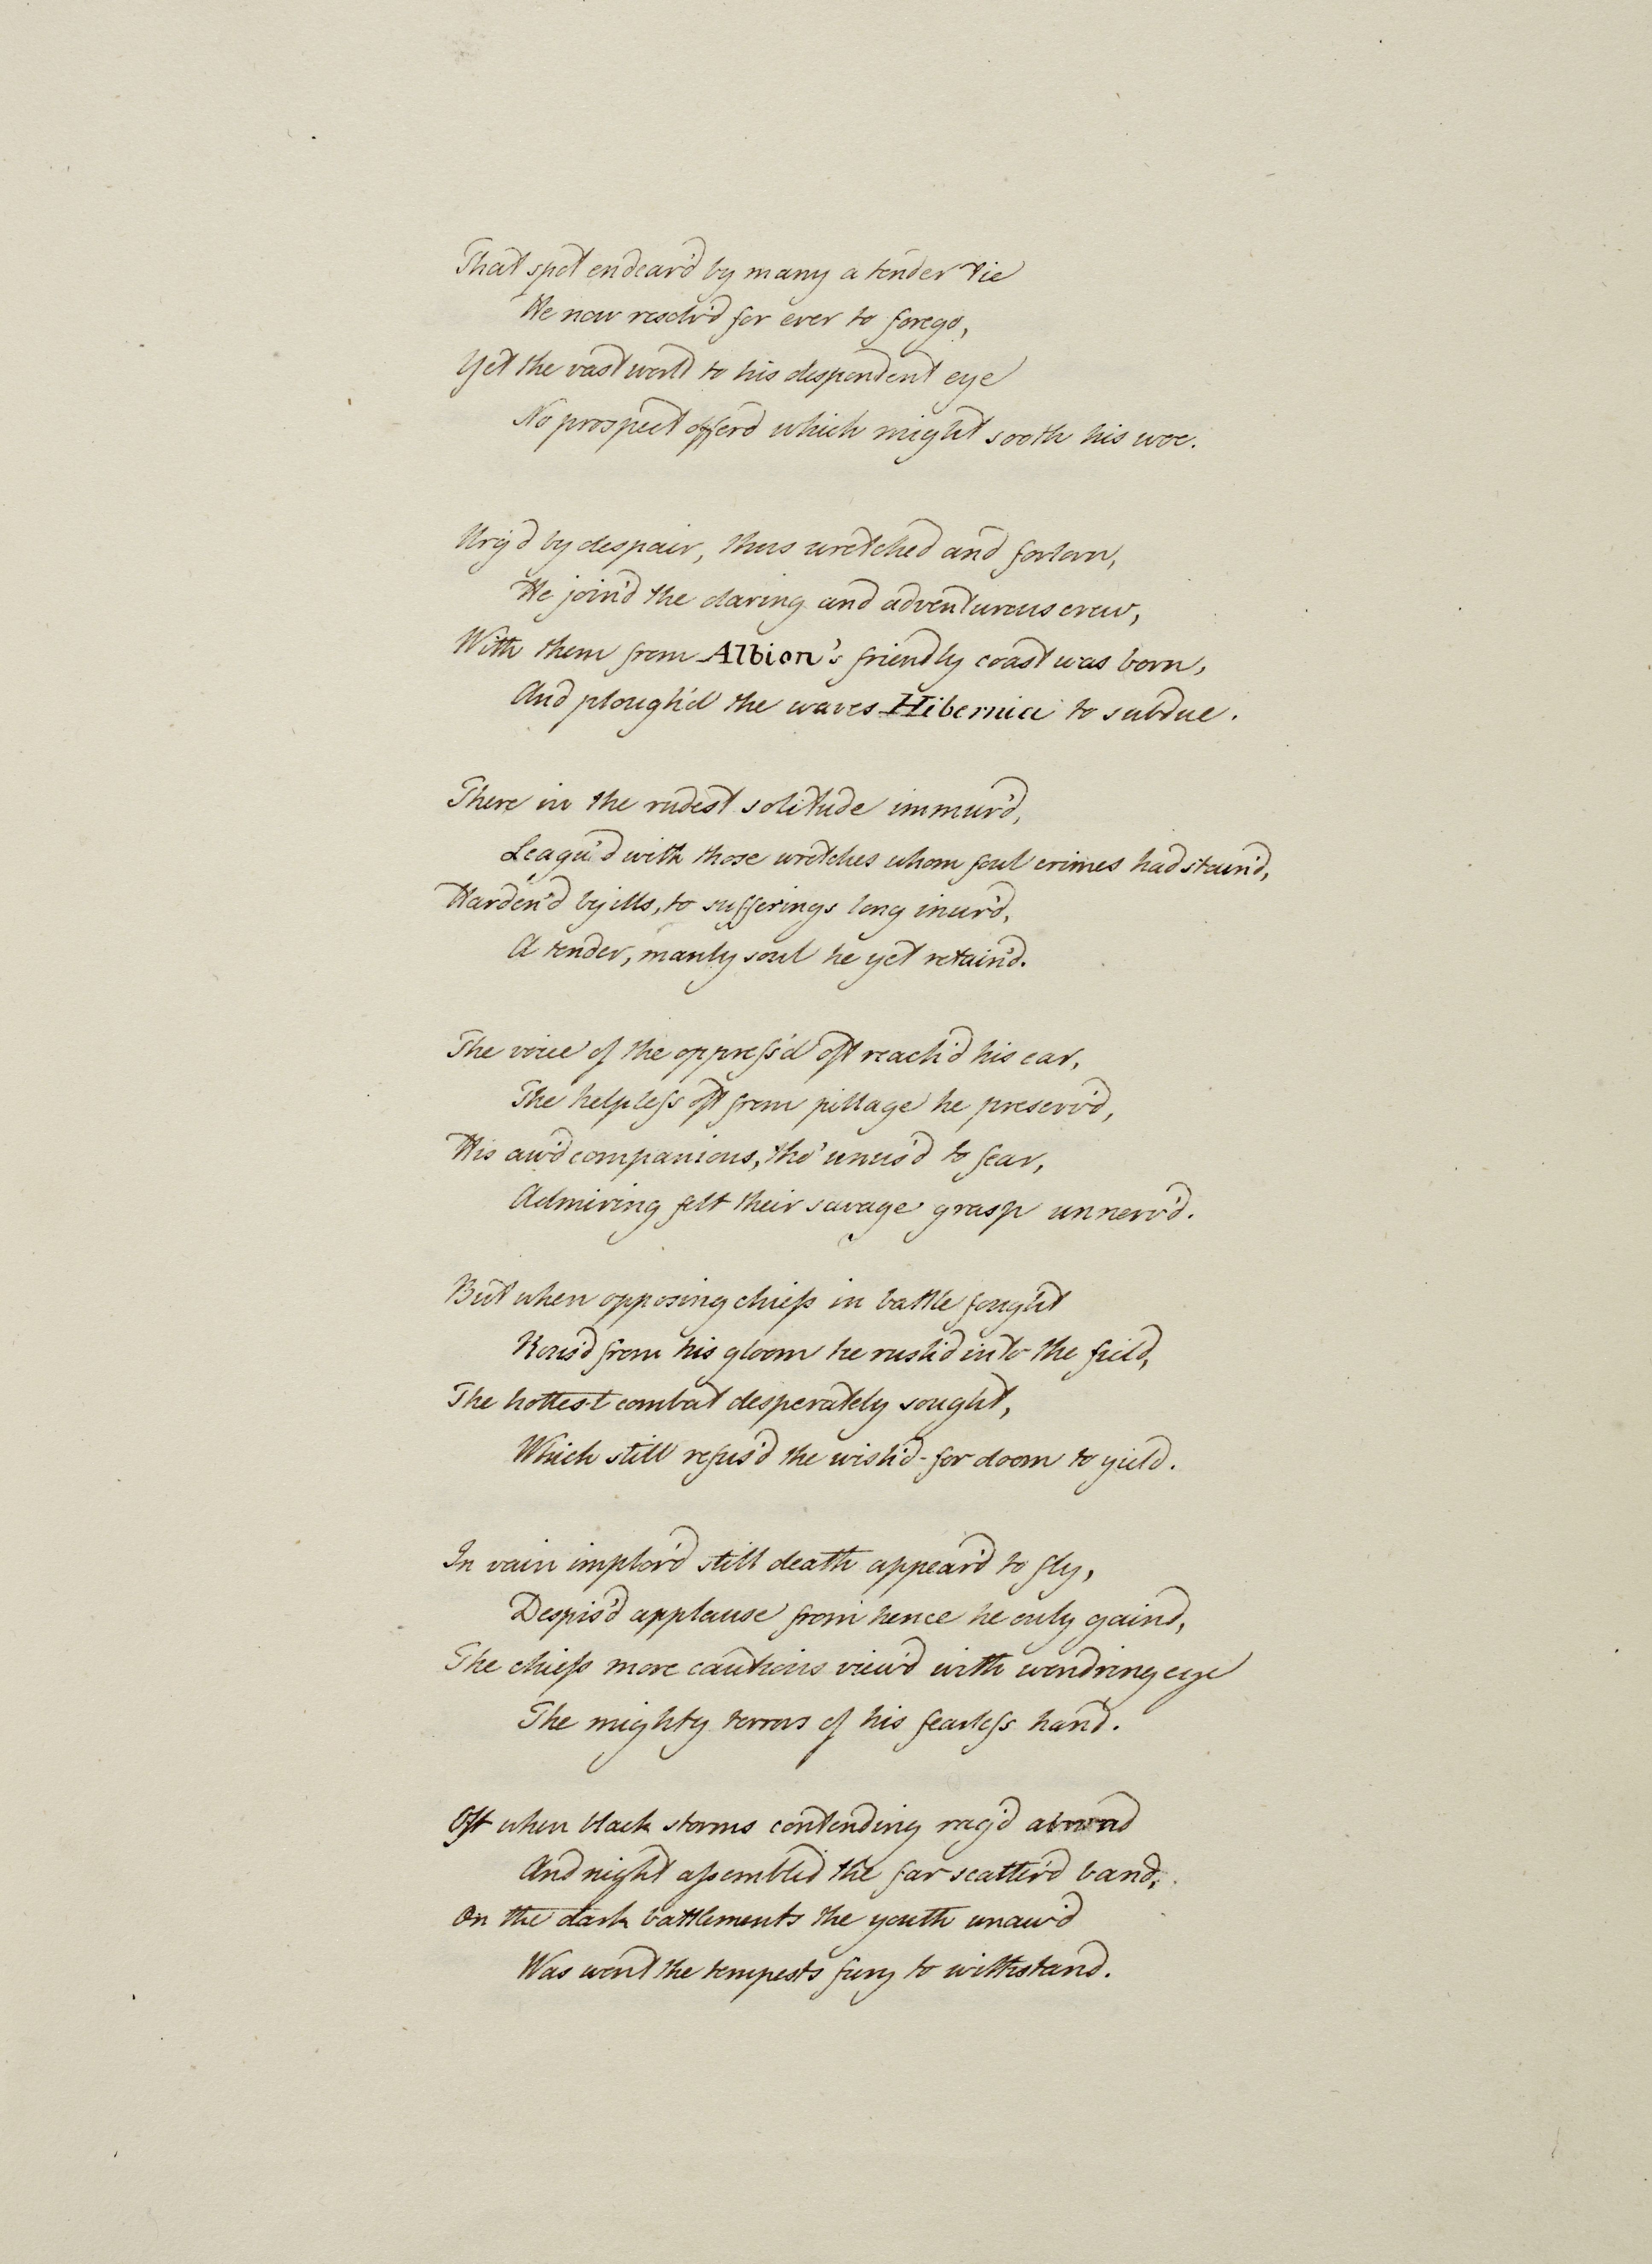 That spot endear'd by many a tender tie
He now resolv'd for ever to forego,
Yet the vast world to his despondent eye
No prospect offer'd which might sooth his woe.
Urg'd by despair, thus wretched and forlorn,
He join'd the daring and adventurous crew,
With them from Albion's friendly coast was born,
And plough'd the waves Hibernia to subdue.
There in the rudest solitude immur'd,
Leagu'd with those wretches whom foul crimes had stain'd,
Harden'd by ills, to sufferings long inur'd,
A tender, manly soul he yet retain'd.
The voice of the oppreſs'd oft reach'd his ear,
The helpleſs oft from pillage he preserv'd,
His aw'd companions, tho' unus'd to fear,
Admiring felt their savage grasp unnerv'd.
But when opposing chiefs in battle fought
Rous'd from his gloom he rush'd into the field,
The hottest combat desperately sought,
Which still refus'd the wish'd-for doom to yield.
In vain implor'd still death appear'd to fly,
Despis'd applause from hence he only gain'd,
The chiefs more cautious view'd with wondring eye
The mighty terrors of his fearleſs hand.
Oft when black storms contending rag'd abroad
And night aſsembled the far scatter'd band,
On the dark battlements the youth unaw'd
Was wont the tempests fury to withstand.